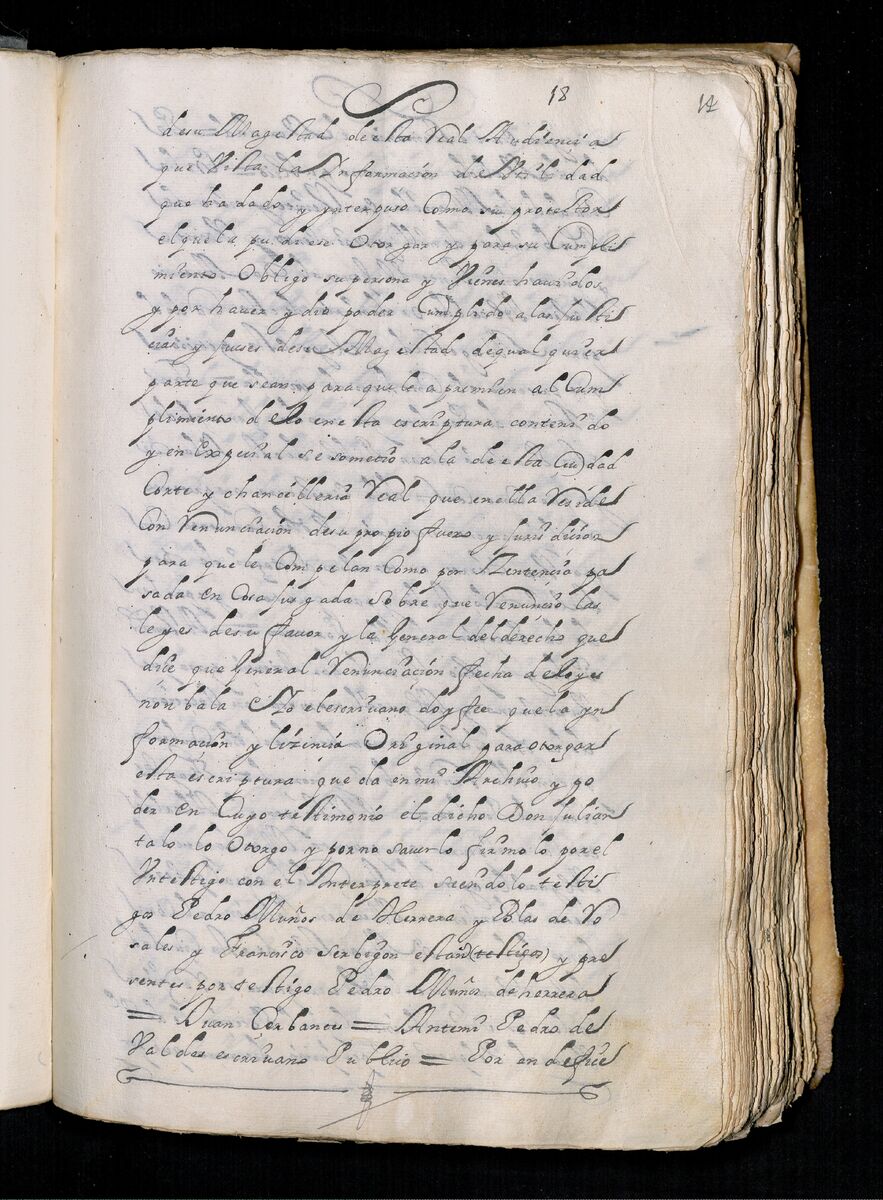 18
14
desu Magestad de esta Real Audiencia
que Vista la Ynformación de Utilidad
que ha dado y ynterpuso Como su protetor
el que la pudiese Otorgar y para su Cumpli
miento Obligo su persona y Vienes hauidos
y por hauer y dio poder Cumplido a las Justi
cias y Jueses desu Magestad de qual quier
parte que sean para que le apremien al Cum
plimiento de lo en esta escriptura contenido
y en Expecial se sometio a la de esta Ciudad
Corte y chancilleria Real que en ella Reside
Con Renunciación desu propio fuero y Jurisdicion
para que le Compelan Como por Sentencia pa
sada en Cosa Jusgada sobre que Renuncio las
leyes desu fauor y la General del derecho que
dice que General Renunciación fecha de leyes
non bala Yo el escriuano doy fee que la yn
formación y lizencia Original para otorgar
esta escriptura queda en mi Archiuo y po
der en Cuyo testimonio el dicho Don Julian
talo lo Otorgo y por no sauerlo firmo lo por el
Un testigo con el Interprete siendolo testi
gos Pedro Muños de Herrera y Blas de Ro
sales y Francisco Serbigon estan (testigos) y pre
sentes por testigo Pedro Muños de herrera
= Juan Corbantes = Antemi Pedro de
Valdes escriuano Publico = Por ende